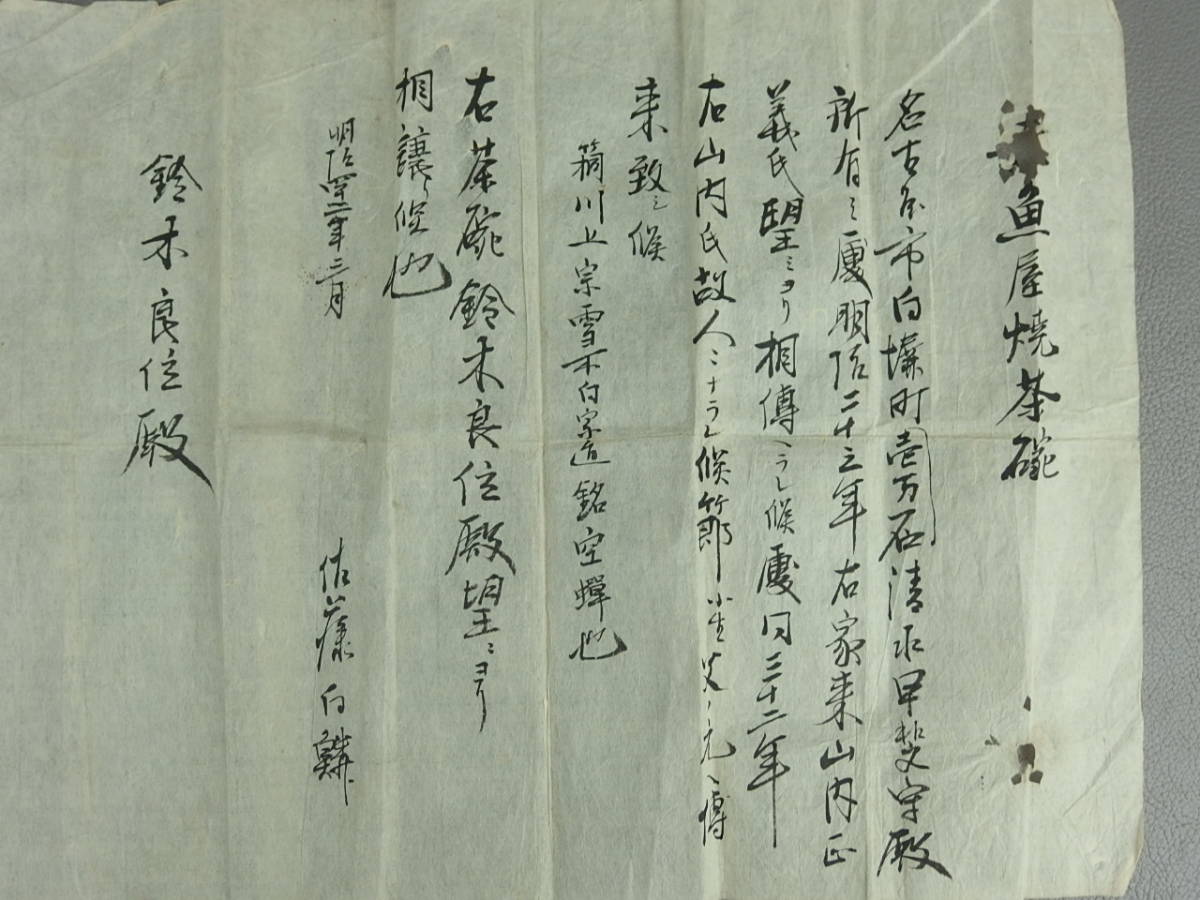 魚屋焼茶碗
名古屋市白壁町壱万石清水甲斐守殿
所有之處明治二十三年右家来山内正
義氏望ミヨリ相傳ヘラレ候處同三十二年
右山内氏故人ニナラレ候節小生父ノ元ヘ傳
来致シ候
箱川上宗雪不白宗匠銘空蟬也
右茶碗鈴木良位殿望ミヨリ
相譲り候也
明治四十二年二月
佐藤白
鈴木良位殿